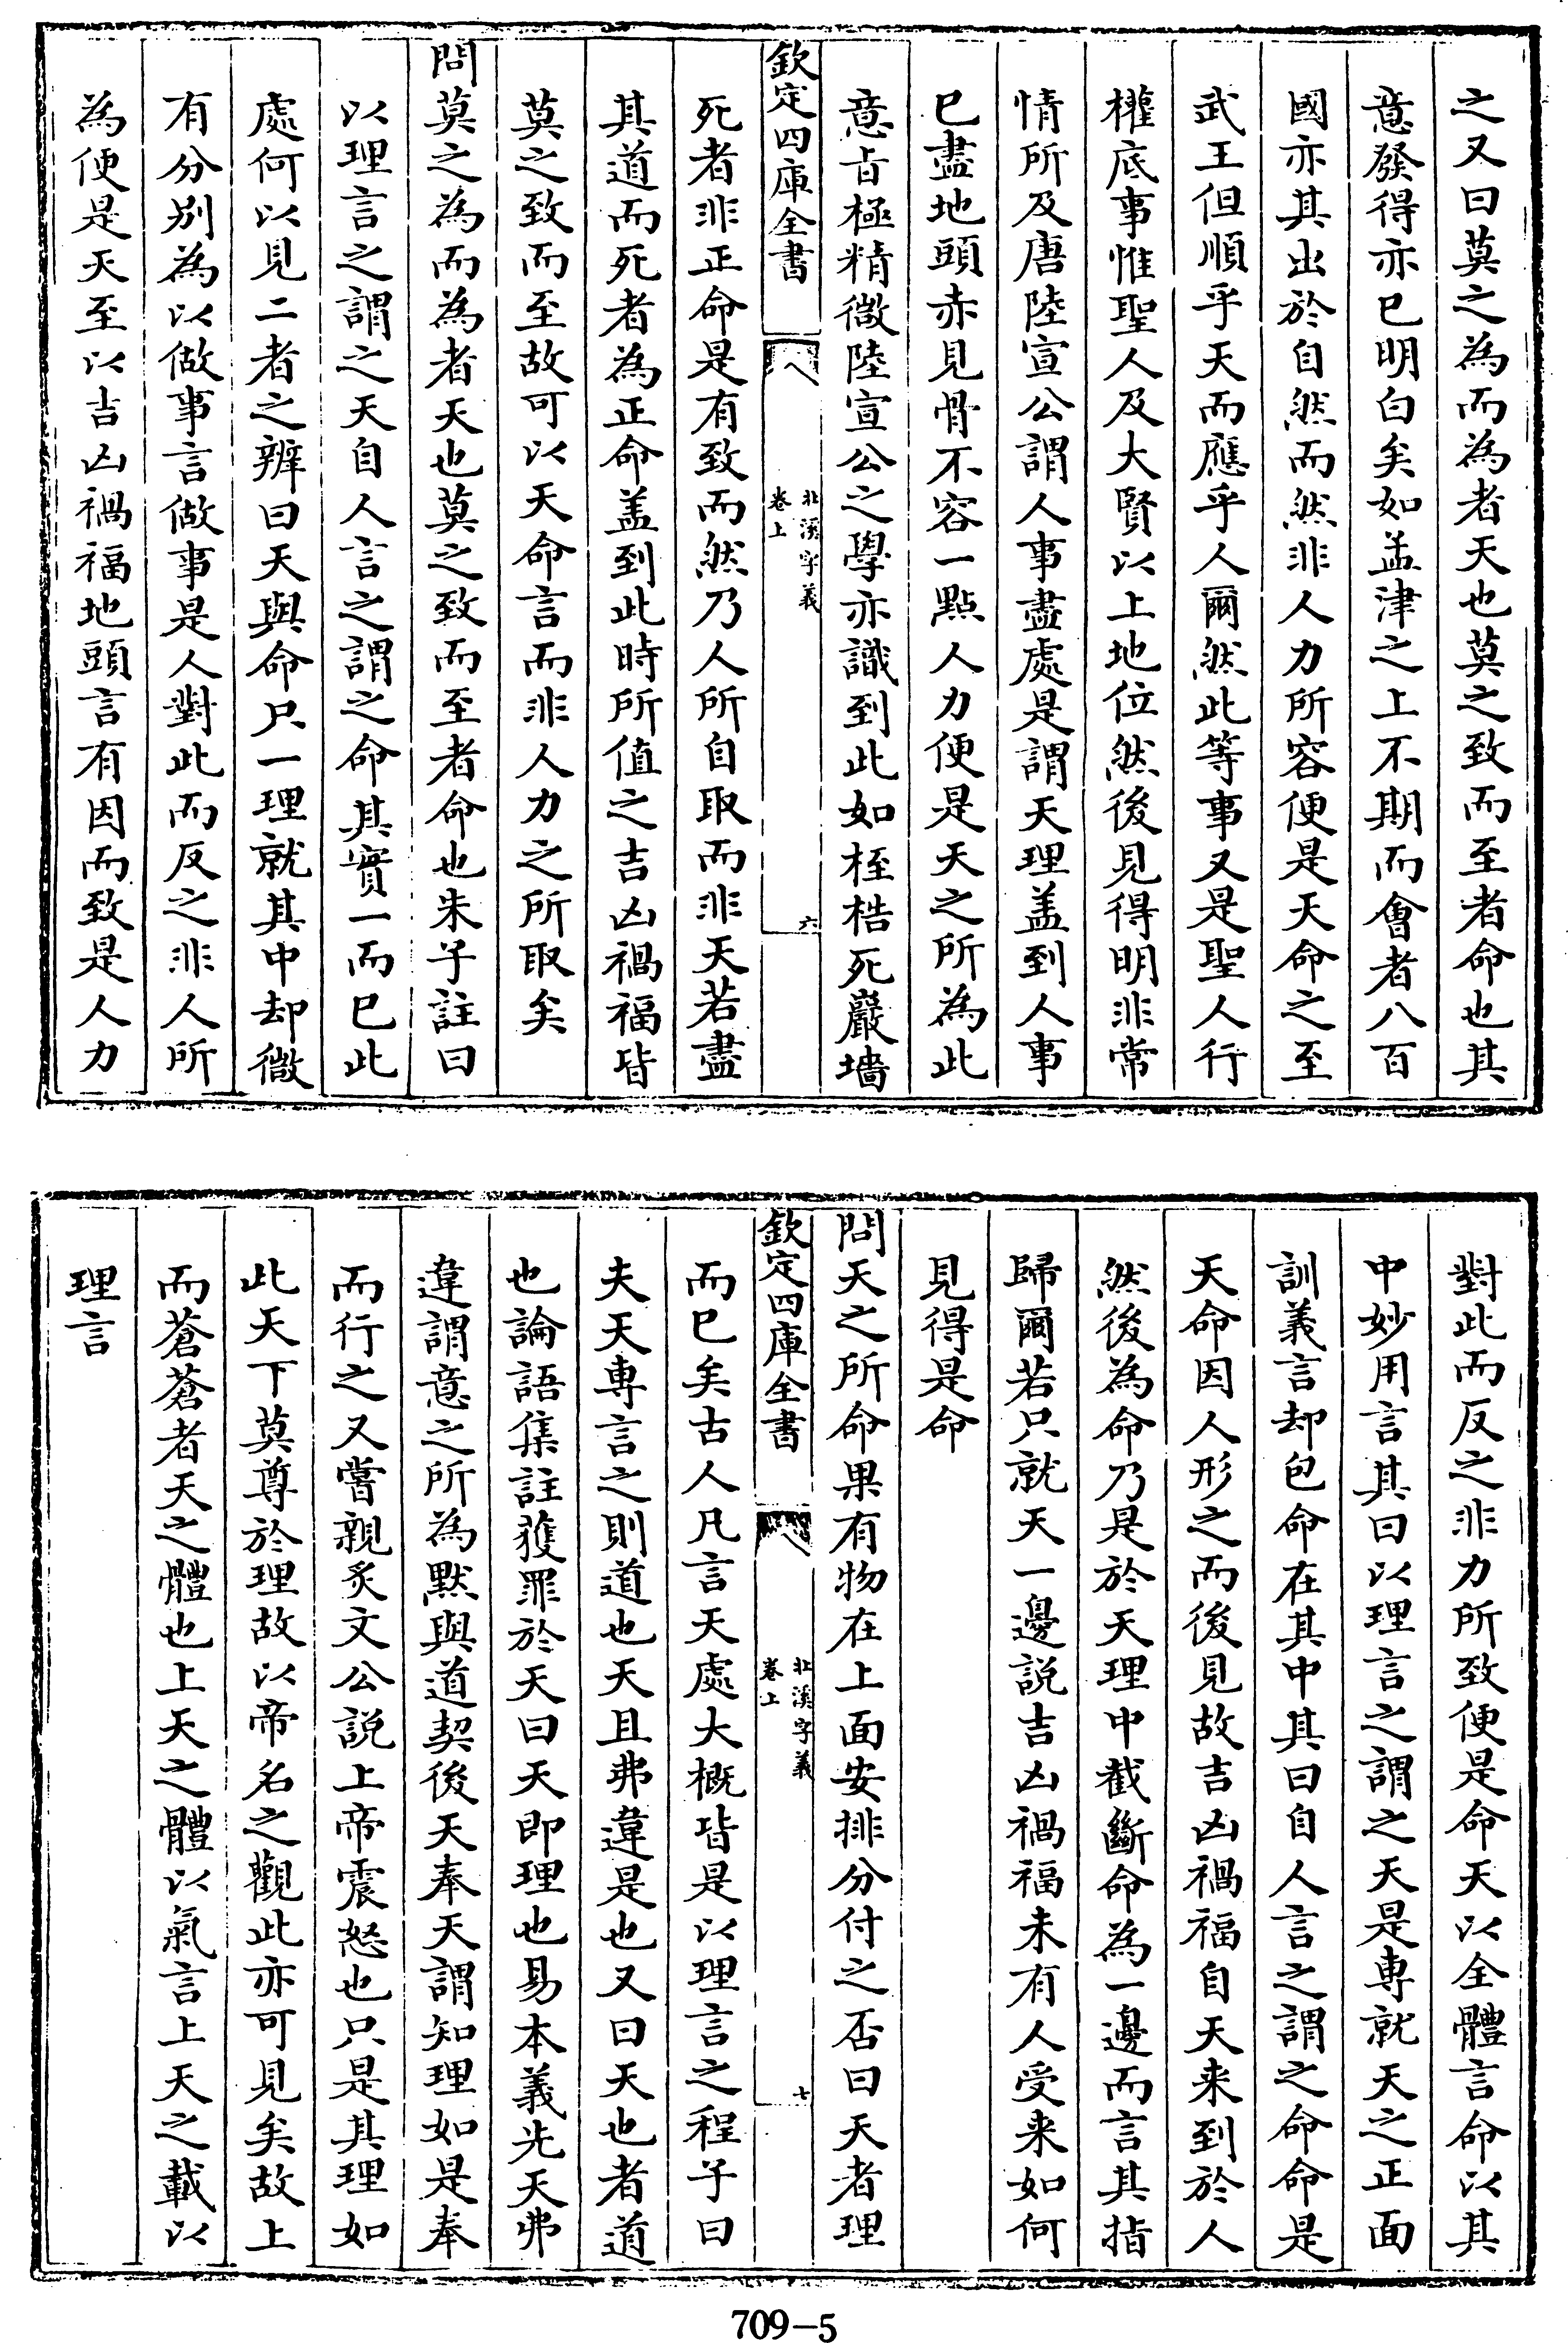 之又曰莫之為而為者天也莫之致而至者命也其
意發得亦已明白矣如孟津之上不期而會者八百
國亦其出於自然而然非人力所容便是天命之至
武王但順乎天而應乎人爾然此等事又是聖人行
權底事惟聖人及大賢以上地位然後見得明非常
情所及唐陸宣公謂人事盡處是謂天理盖到人事
已盡地頭赤見骨不容一點人力便是天之所為此
意旨極精微陸宣公之學亦識到此如桎梏死巖墻
欽定四庫全書
北溪字義
卷上
六
死者非正命是有致而然乃人所自取而非天若盡
其道而死者為正命盖到此時所值之吉凶禍福皆
莫之致而至故可以天命言而非人力之所取矣
問莫之為而為者天也莫之致而至者命也朱子註曰
以理言之謂之天自人言之謂之命其實一而已此
處何以見二者之辨曰天與命只一理就其中却微
有分别為以做事言做事是人對此而反之非人所
為便是天至以吉凶禍福地頭言有因而致是人力
對此而反之非力所致便是命天以全體言命以其
中妙用言其曰以理言之謂之天是專就天之正面
訓義言却包命在其中其曰自人言之謂之命命是
天命因人形之而後見故吉凶禍福自天来到於人
然後為命乃是於天理中截斷命為一邊而言其指
歸爾若只就天一邊説吉凶禍福未有人受来如何
見得是命
問天之所命果有物在上面安排分付之否曰天者理
欽定四庫全書
北溪字義
卷上
七
而已矣古人凡言天處大概皆是以理言之程子曰
夫天專言之則道也天且弗違是也又曰天也者道
也論語集註獲罪於天曰天即理也易本義先天弗
違謂意之所為黙與道契後天奉天謂知理如是奉
而行之又嘗親炙文公説上帝震怒也只是其理如
此天下莫尊於理故以帝名之觀此亦可見矣故上
而蒼蒼者天之體也上天之體以氣言上天之載以
理言
709-5